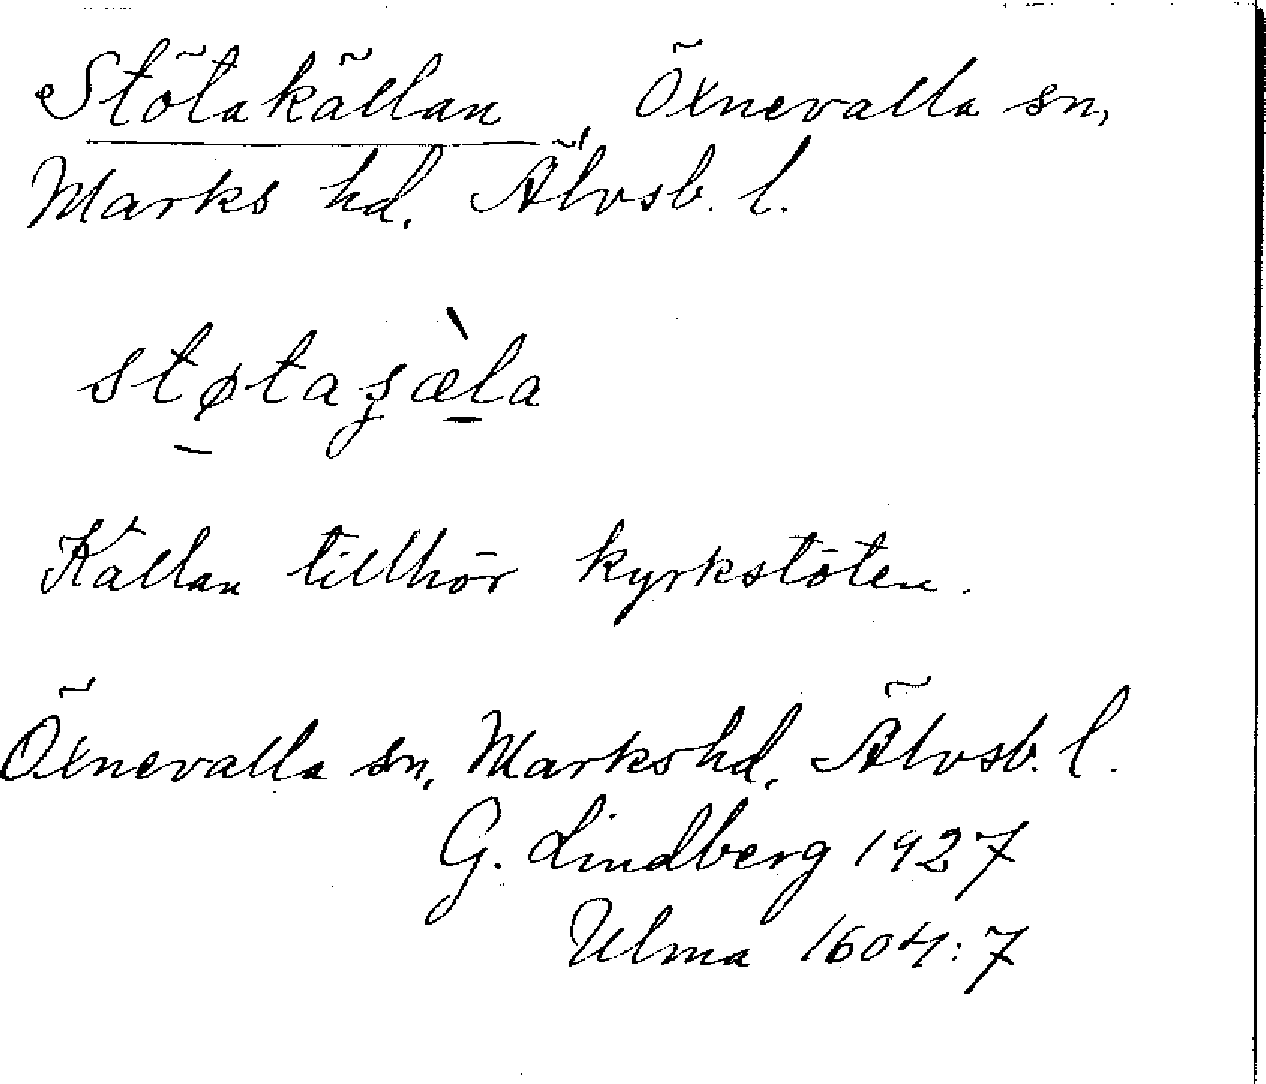 Stötakällan, Öxnevalla sn,
Marks hd. Älvsb. l.
støtaʂæ̀la
Källan tillhör kyrkstöten.
Öxnevalla sn, Marks hd, Älvsb. l.
G. Lindberg 1927
Ulma 1604:7